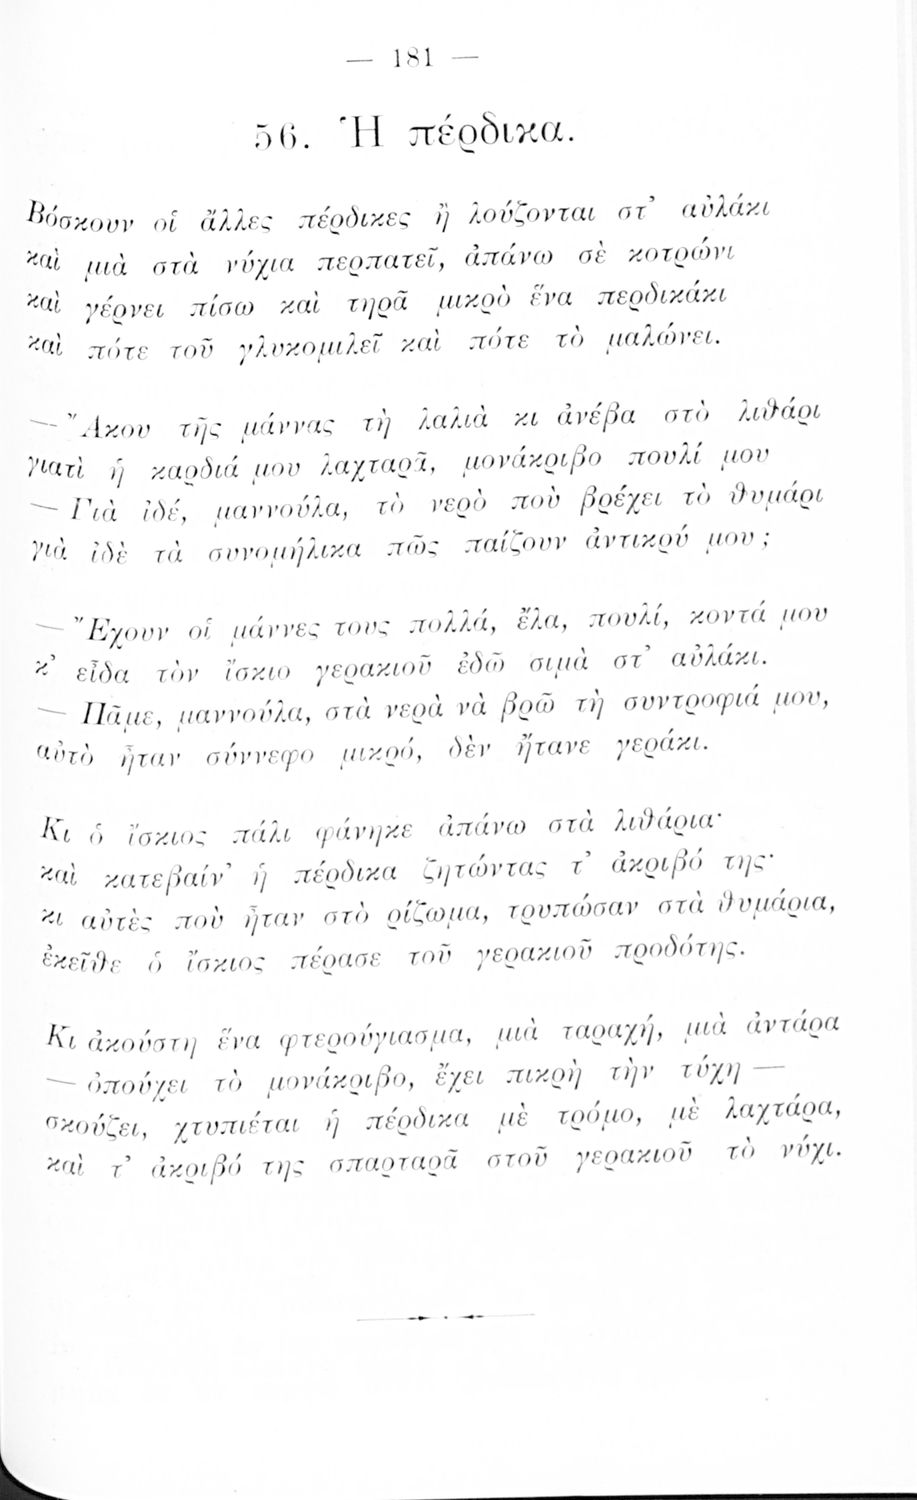 — 181 —
56. Ἡ πέρδικα.
Βόσκουν οἱ ἄλλες πέρδικες ἢ λούζονται στ’ αὐλάκι
καὶ μιὰ στὰ νύχια περπατεῖ, ἀπάνω σὲ κοτρώνι
καὶ γέρνει πίσω καὶ τηρᾶ μικρὸ ἕνα περδικάκι
καὶ πότε τοῦ γλυκομιλεῖ καὶ πότε τὸ μαλώνει.
— Ἄκου τῆς μάννας τὴ λαλιὰ κι ἀνέβα στὸ λιθάρι
γιατὶ ἡ καρδιά μου λαχταρᾶ, μονάκριβο πουλί μου
— Γιὰ ἰδέ, μαννούλα, τὸ νερὸ ποὺ βρέχει τὸ θυμάρι
γιὰ ἰδὲ τὰ συνομήλικα πῶς παίζουν ἀντικρύ μου ;
— Ἔχουν οἱ μάννες τους πολλά, ἔλα, πουλί, κοντά μου
κ’ εἶδα τὸν ἴσκιο γερακιοῦ ἐδῶ σιμὰ στ’ αὐλάκι.
— Πᾶμε, μαννούλα, στὰ νερὰ νὰ βρῶ τὴ συντροφιά μου,
αὐτὸ ἦταν σύννεφο μικρό, δὲν ἤτανε γεράκι.
Κι ὁ ἴσκιος πάλι φάνηκε ἀπάνω στὰ λιθάρια·
καὶ κατεβαίν’ ἡ πέρδικα ζητώντας τ’ ἀκριβό της·
κι αὐτὲς ποὺ ἦταν στὸ ρίζωμα, τρυπώσαν στὰ θυμάρια,
ἐκεῖθε ὁ ἴσκιος πέρασε τοῦ γερακιοῦ προδότης.
Κι ἀκούστη ἕνα φτερούγιασμα, μιὰ ταραχή, μιὰ ἀντάρα
— ὁπούχει τὸ μονάκριβο, ἔχει πικρὴ τὴν τύχη —
σκούζει, χτυπιέται ἡ πέρδικα μὲ τρόμο, μὲ λαχτάρα,
καὶ τ’ ἀκριβό της σπαρταρᾶ στοῦ γερακιοῦ τὸ νύχι.